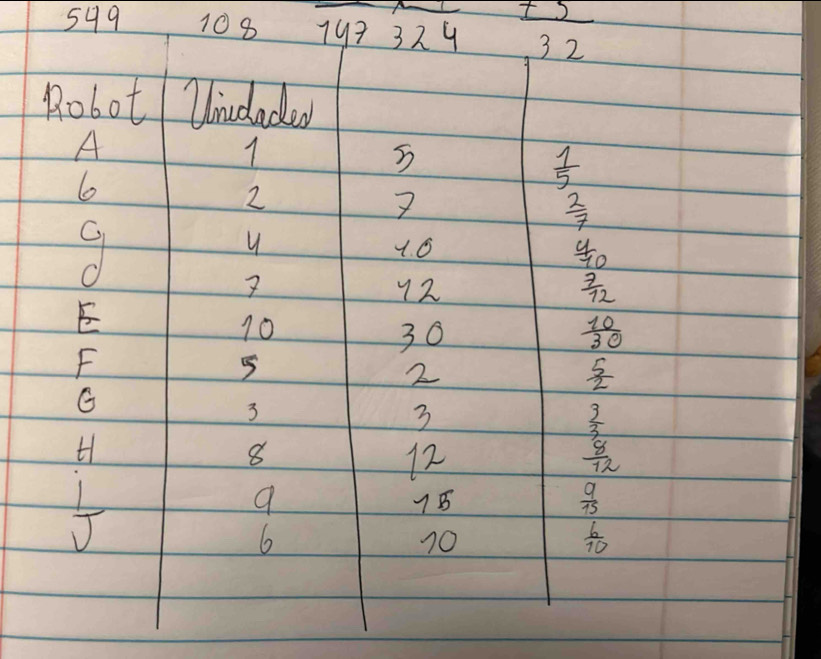 549 108 147 324 32
Robot Unidades
A 1 5 1/5
b 2 7 2/7
C 4 10 4/10
d 7 12 7/12
E 10 30 10/30
F 5 2 5/2
G 3 3 3/3
H 8 12 8/12
i 9 15 9/15
J 6 10 6/10